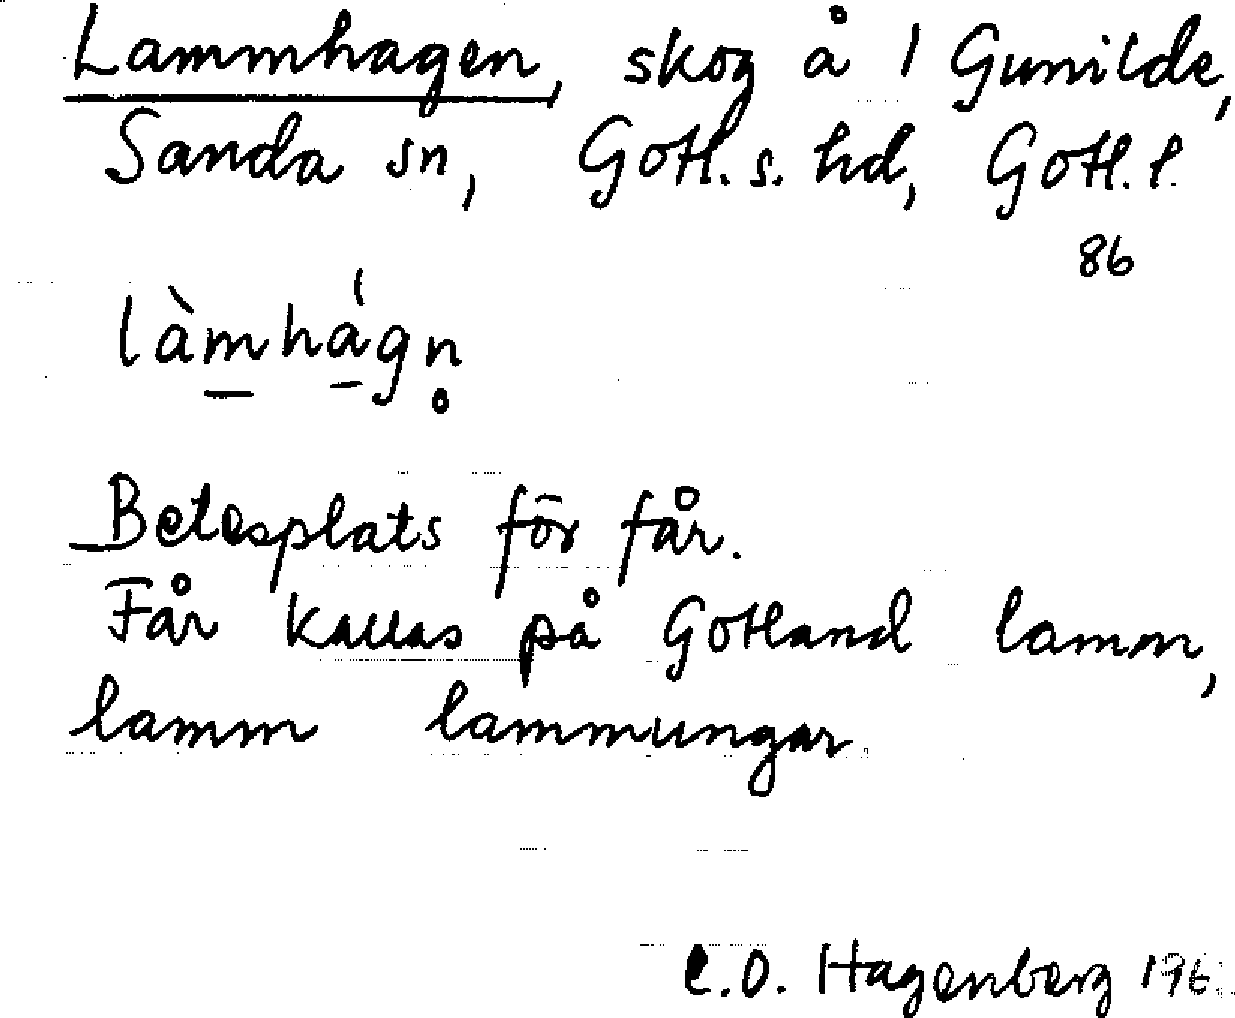 Lammhagen, skog å 1 Gunnilde,
Sanda sn, Gotl. s. hd, Gotl. l.
86
làmhágn̥
Betesplats för får.
Får kallas på Gotland lamm,
lamm lammungar.
C.O. Hagenberg